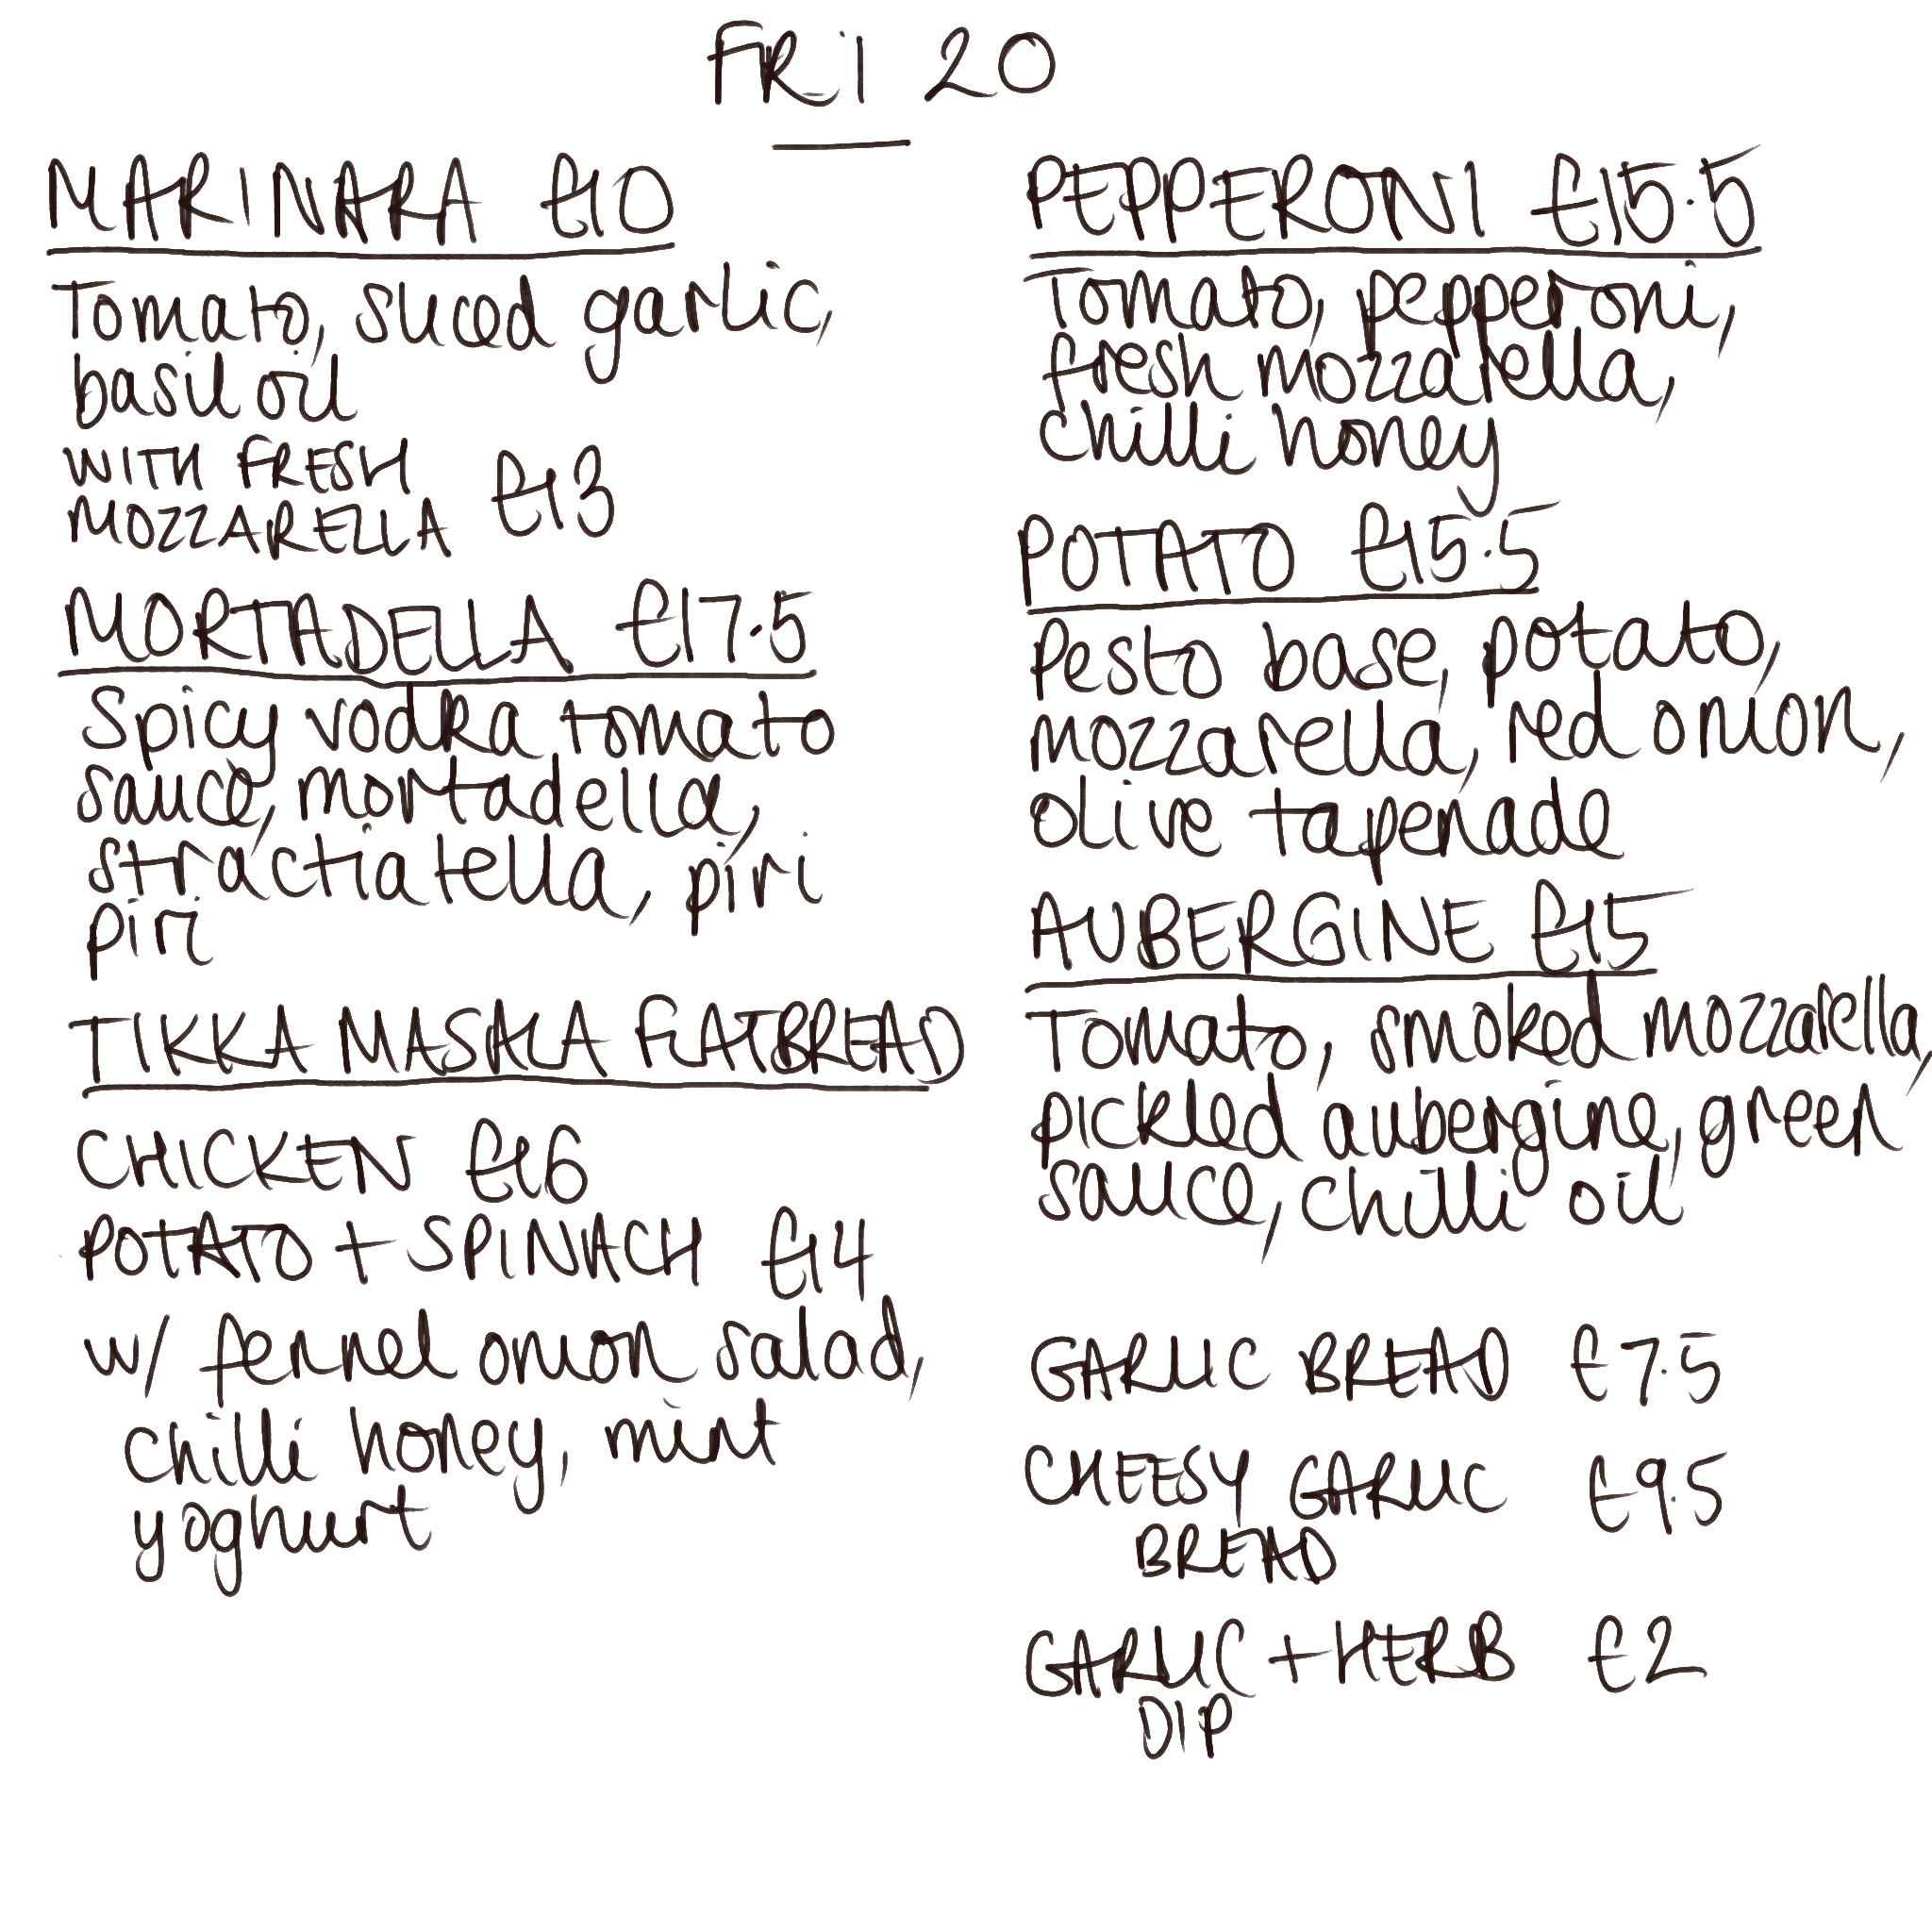 FRI 20
MARINARA £10
Tomato, sliced garlic,
basil oil
WITH FRESH
MOZZARELLA £13
MORTADELLA £17.5
Spicy vodka tomato
sauce, mortadella,
stractiatella, piri
piri
TIKKA MASALA FLATBREAD
CHICKEN £16
POTATO + SPINACH £14
w/ fennel onion salad,
chilli honey, mint
yoghurt
PEPPERONI £15.5
Tomato, pepperoni,
fresh mozzarella,
chilli honey
POTATO £15.5
Pesto base, potato,
mozzarella, red onion,
olive tapenade
AUBERGINE £15
Tomato, smoked mozzarella,
pickled aubergine, green
sauce, chilli oil
GARLIC BREAD £7.5
CHEESY GARLIC £9.5
BREAD
GARLIC + HERB £2
DIP